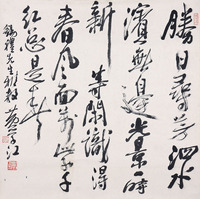 勝日尋芳泗水
濱無邊光景一時
新等閒識得
春風面萬紫千
紅總是春
先生雅教